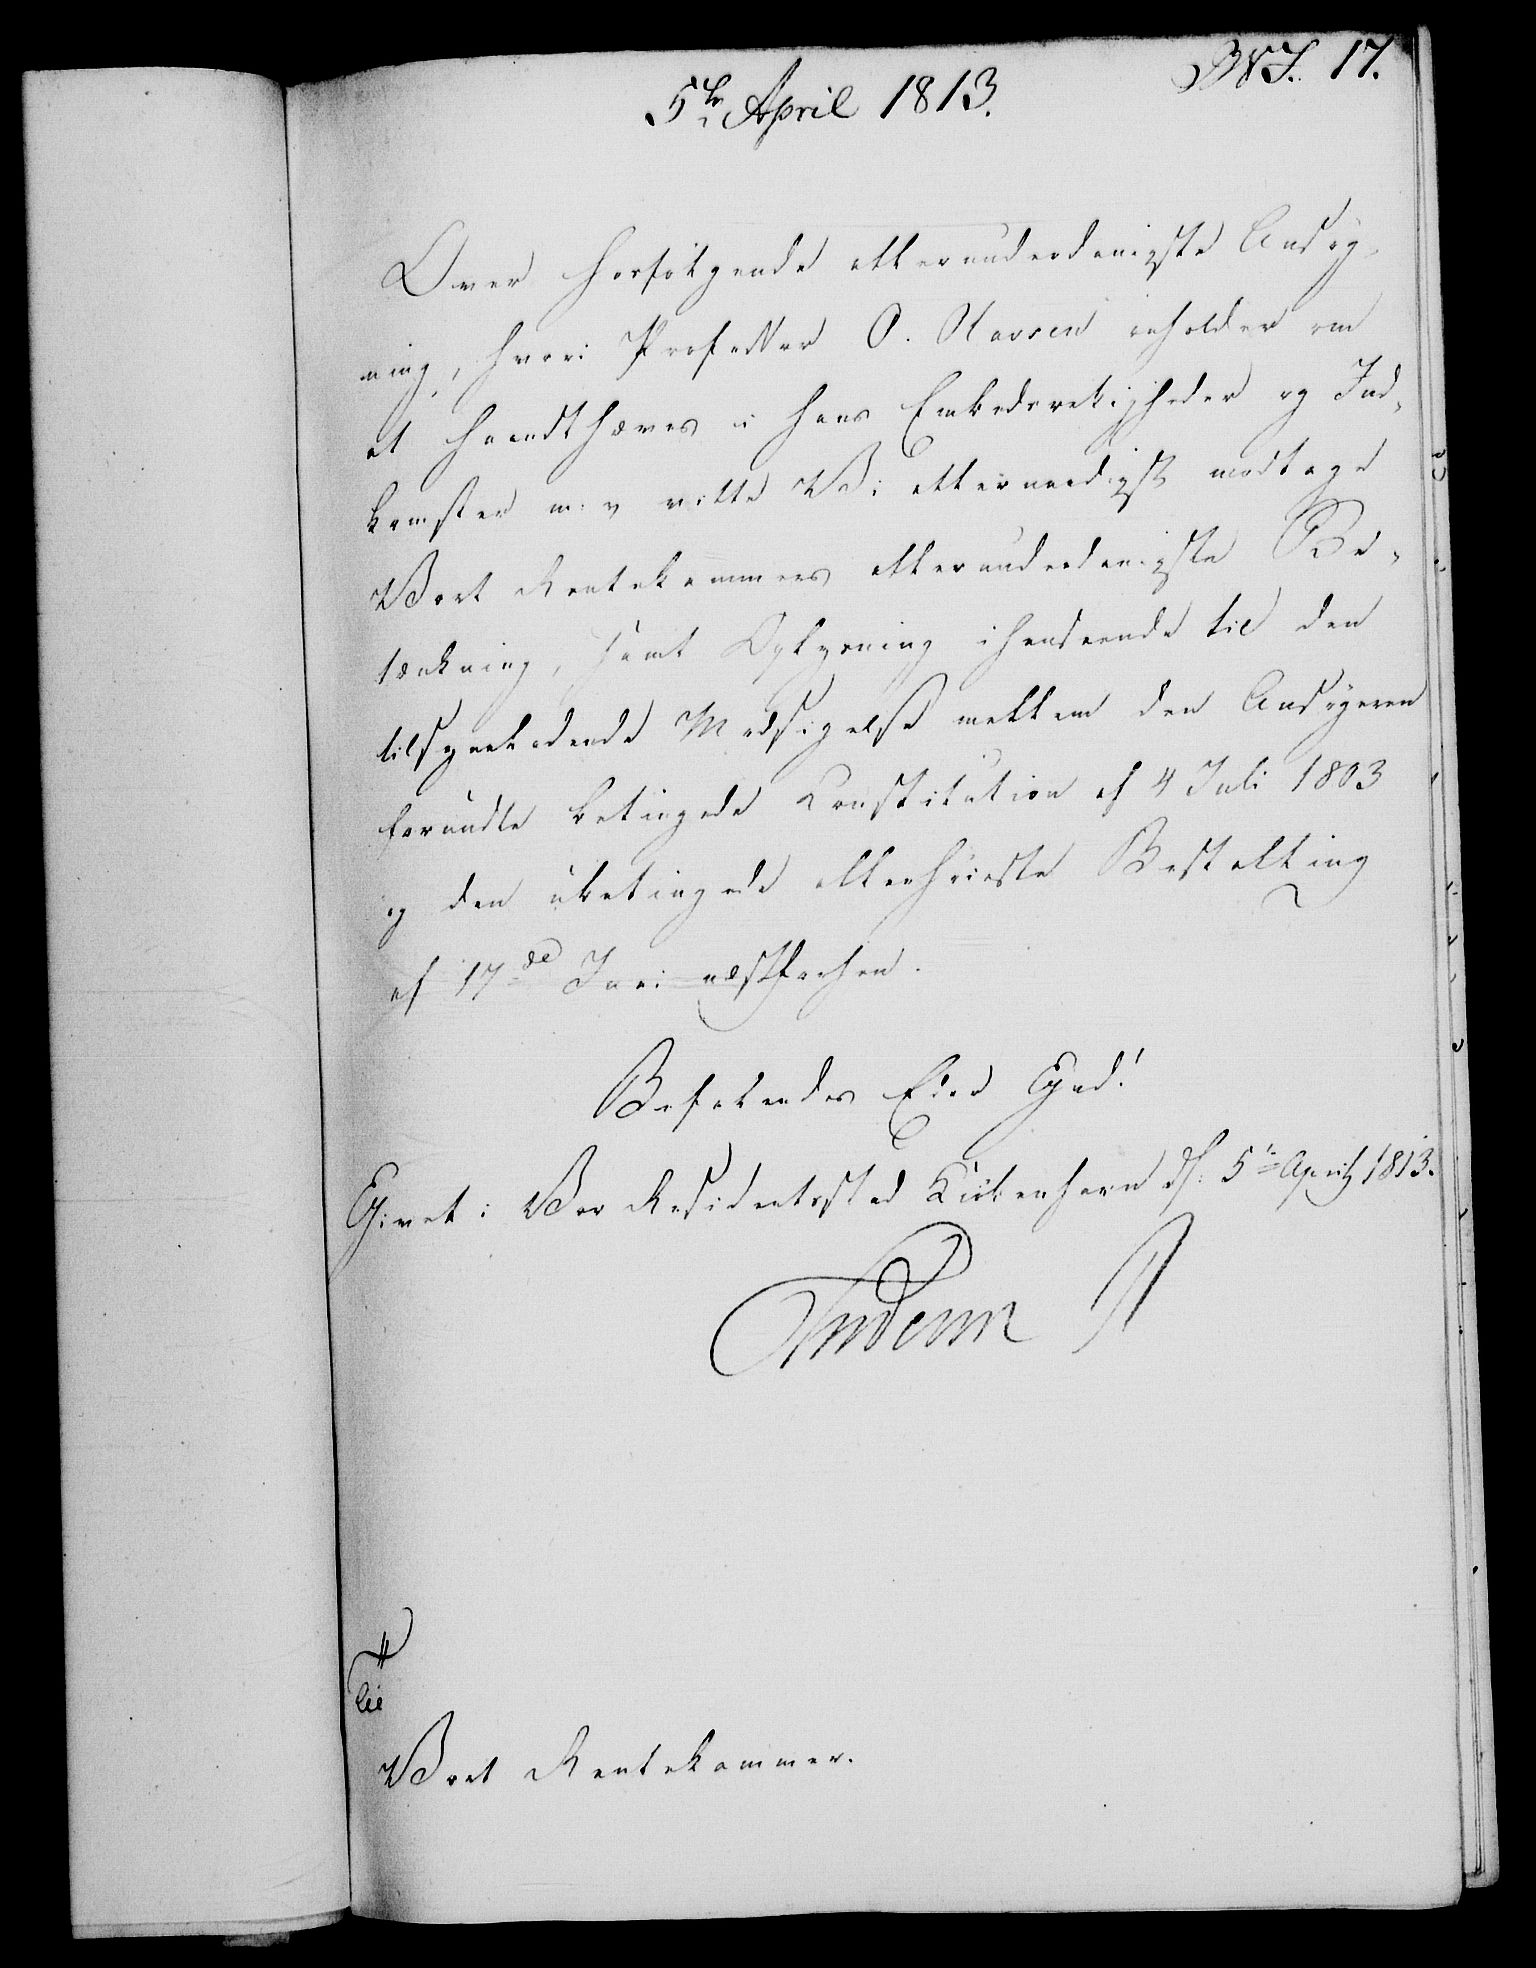 5te April 1813.
17.
Over hosfølgende allerunderdanigste Ansøg-
ning, hvori Professor O. Olavsen anholder om
at haandthæves i hans Embedsrettigheder og Ind-
komster m: v ville Vi allernaadigst modtage
Vort Rentekammers allerunderdanigste Be-
tænkning, samt Oplysning ihenseende til den
tilsyneladende Modsigelse mellem den Ansøgeren
forundte betingede Constitution af 4 Juli 1803
og den ubetingede allerhøieste Bestalling
af 17de Juni næstefter.
Befalendes Eder Gud!
Givet i Vor Residentsstad Kiöbenhavn d: 5te April 1813.
Frederik R
Til
Vort Rentekammer.